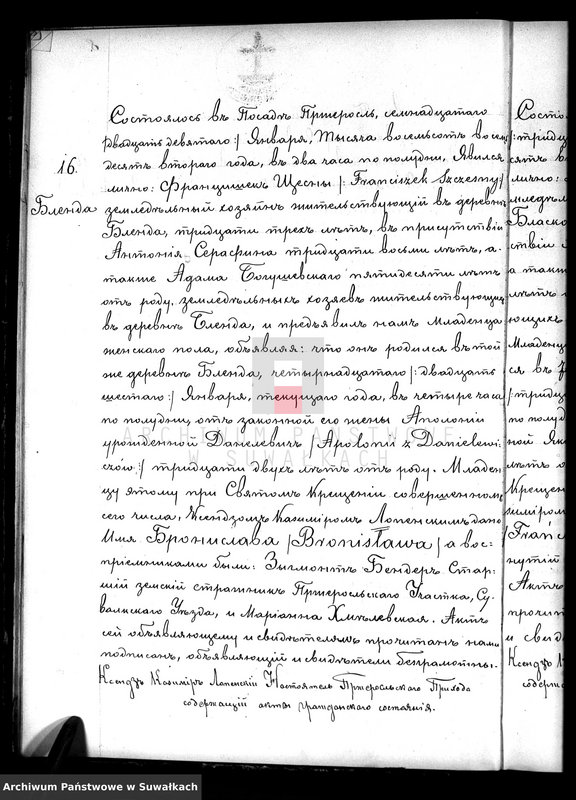 Состоялось въ Посадѣ Пржеросль, семнадцатаго
/двадцать девятаго:/ Января, тысяча восемьсотъ восемь
16.
десятъ втораго года, въ два часа по полудни, Явился
лично: Францишекъ Щесны /: Franciszek Szczesny/
Бленда
земледѣльный хозяинъ жительствующій въ деревнѣ
Бленда, тридцати трехъ лѣтъ, въ присутствіи
Антонія Серафина тридцати восьми лѣтъ, а
также Адама Богушевскаго пятидесяти лѣтъ
отъ роду, земледѣльныхъ хозяевъ жительствующихъ
въ деревнѣ Бленда, и предъявилъ намъ младенца
женскаго пола, объявляя: что онъ родился въ той
же деревнѣ Бленда, четырнадцатаго /: двадцать
шестаго:/ Января, текущаго года, въ четыре часа
по полудни, отъ законной его жены Аполоніи
урожденной Данелевичъ /Apolonii z Danielewi-
czów:/ тридцати двухъ лѣтъ отъ роду. Младен
цу этому при Святомъ Крещеніи совершенномъ
сего числа, Ксендзомъ Казиміромъ Лопенскимъ дано
имя Бронислава /Bronisława/ а вос-
пріемниками были: Зыгмонтъ Бендеръ Стар-
шій земскій стражникъ Пржеросльскаго Участка, Су-
валкскаго Уѣзда, и Маріанна Хмѣлевская. Актъ
сей объявляющему и свидѣтелямъ прочитанъ нами
подписанъ, объявляющій и свидѣтели безграмотны.
Ксендзъ Казиміръ Лопенскій Настоятель Пржеросльскаго Прихода
содержащій акты гражданскаго состоянія.
ARCHIWUM PAŃSTWOWE
W SUWAŁKACH
Archiwum Państwowe w Suwałkach